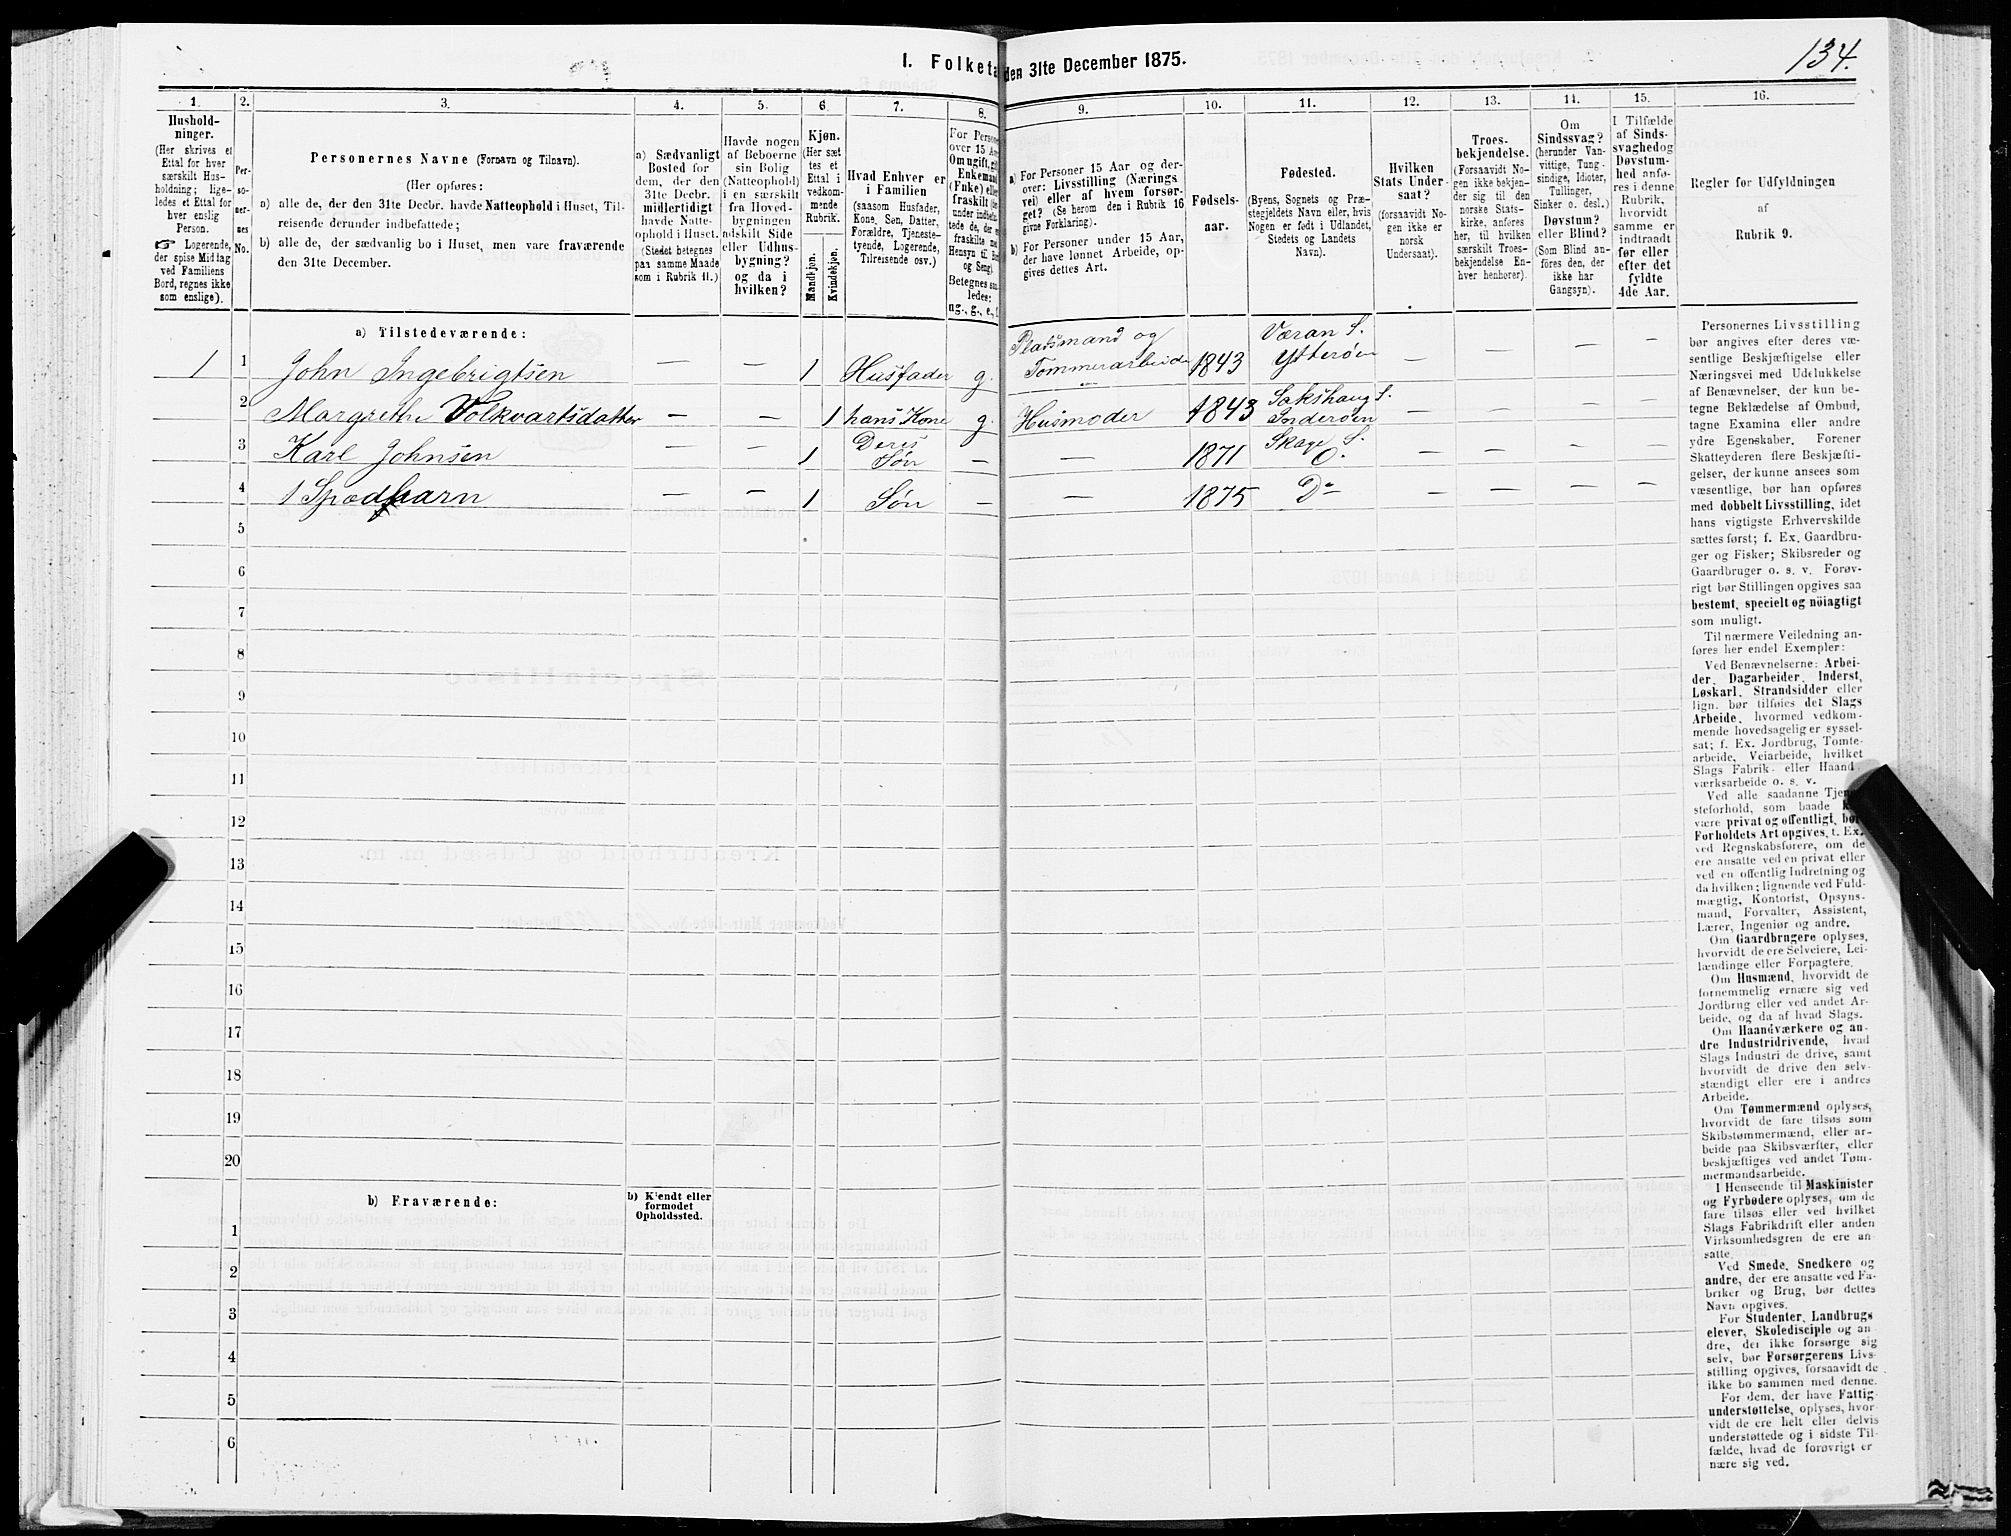 134.
I. Folketa
den 31te December 1875.
1.
2.
3.
4.
5.
6.
7.
8.
9.
10.
11.
12.
13.
14.
15.
16.
Hushold-
ninger.
(Her skrives et
Ettal for hver
særskilt Hus-
holdning; lige-
ledes et Ettal for
hver enslig
Person.
☞ Logerende,
der spise Middag
ved Familiens
Bord, regnes ikke
som enslige).
Per-
so-
ner-
nes
No.
Personernes Navne (Fornavn og Tilnavn).
(Her opføres:
a) alle de, der den 31te Decbr. havde Natteophold i Huset, Til-
reisende derunder indbefattede;
b) alle de, der sædvanlig bo i Huset, men vare fraværende
den 31te December.
a) Sædvanligt
Bosted for
dem, der den
31te Decbr.
midlertidigt
havde Natte-
ophold i Huset.
(Stedet betegnes
paa samme Maade
som i Rubrik 11.)
Havde nogen
af Beboerne
sin Bolig
(Natteophold)
i en særskilt
fra Hoved-
bygningen
adskilt Side
eller Udhus-
bygning?
og da i
hvilken?
Kjøn.
(Her sæt-
tes et
Ettal i
vedkom-
mende
Rubrik.
Mandkjøn.
Kvindekjøn.
Hvad Enhver er
i Familien
(saasom Husfader,
Kone, Søn, Datter,
Forældre, Tjeneste-
tyende, Logerende,
Tilreisende osv.)
For Persone
over 15 Aar
Om ugift, gi
Enkemand
(Fnke) elle
fraskilt (for
under indbefa
tede de, der e
fraskilte me
Hensyn til Bo
og Seng).
Betegnes saa
ledes:
ug., g., e., f.
a) For Personer 15 Aar og der-
over: Livsstilling (Nærings-
vei) eller af hvem forsør-
get? (Se herom den i Rubrik 16
givne Forklaring).
b) For Personer under 15 Aar,
der have lønnet Arbeide, op-
gives dettes Art.
Fødsels-
aar.
Fødested.
(Byens, Sognets og Præ-
stegjeldets Navn eller, hvis
Nogen er født i Udlandet,
Stedets og Landets
Navn).
Hvilken
Stats Under-
saat?
(forsaavidt No-
gen ikke er
norsk
Undersaat).
Troes-
bekjendelse.
(Forsaavidt No-
gen ikke bekjen-
der sig til den
norske Stats-
kirke, anføres
her, til hvilken
særskilt Troes-
bekjendelse En-
hver henhører).
Om
Sindssvag?
(herunder Van-
vittige, Tung-
sindige, Idioter,
Tullinger,
Sinker o. desl.)
Døvstum?
eller Blind?
(Som Blind an-
føres den, der
ikke har
Gangsyn).
I Tilfælde
af Sinds-
svaghed og
Døvstum-
hed anfø-
res i denne
Rubrik,
hvorvidt
samme er
indtraadt
før eller
efter det
fyldte
4de Aar.
Regler for Udfyldningen
af
Rubrik 9.
a) Tilstedeværende:
1 1 John Ingebrigtsen — — 1 Husfader g. Pladsmand og Tømmerarbeide 1843 Væran S. Ytterøen — — — —
2 Margrethe Volkvartsdatter — — 1 hans Kone g. Husmoder 1843 Sakshaug S. Inderøen — — — —
3 Karl Johnsen — — 1 Deres Søn — — 1871 Skage S. O. — — — —
4 1 Spædbarn — — 1 Søn — — 1875 Do — — — —
5
6
7
8
9
10
11
12
13
14
15
16
17
18
19
20
b) Fraværende:
b) Kjendt eller
formodet
Opholdssted.
1
2
3
4
5
6
Personernes Livsstilling
bør angives efter deres væ-
sentlige Beskjæftigelse eller
Næringsvei med Udelukkelse
af Benævnelser, der kun be-
tegne Beklædelse af Ombud,
tagne Examina eller andre
ydre Egenskaber. Forener
Skatteyderen flere Beskjæfti-
gelser, der kunne ansees som
væsentlige, bør han opføres
med dobbelt Livsstilling, idet
hans vigtigste Erhvervskilde
sættes først; f. Ex. Gaardbru-
ger og Fisker; Skibsreder og
Gaardbruger o. s. v. Forøv-
rigt bør Stillingen opgives saa
bestemt, specielt og nöiagtigt
som muligt.
Til nærmere Veiledning an-
føres her endel Exempler:
Ved Benævnelserne: Arbei-
der, Dagarbeider, Inderst,
Løskarl, Strandsidder eller
lign. bør tilføies det Slags
Arbeide, hvormed vedkom-
mende hovedsagelig er syssel-
sat; f. Ex. Jordbrug, Tomte-
arbeide, Veiarbeide, hvilket
Slags Fabrik- eller Haand-
værksarbeide o. s. v.
Ved alle saadanne Tjene-
steforhold, som baade k
være privat og offentligt, bør
Forholdets Art opgives, t. Ex.
ved Regnskabsførere, om de
ere ansatte ved en privat eller
ved en offentlig Indretning og
da hvilken; lignende ved Fuld-
mægtig, Kontorist, Opsyns-
mand, Forvalter, Assistent,
Lærer, Ingeniør og andre.
Om Gaardbrugere oplyses,
hvorvidt de ere Selveiere, Lei-
lændinge eller Forpagtere.
Om Husmænd, hvorvidt de
fornemmelig ernære sig ved
Jordbrug eller ved andet Ar-
beide, og da af hvad Slags.
Om Haandværkere og an-
dre Industridrivende, hvad
Slags Industri de drive, samt
hvorvidt de drive den selv-
stændigt eller ere i andres
Arbeide.
Om Tømmermænd oplyses,
hvorvidt de fare tilsøs som
Skibstømmermænd, eller ar-
beide paa Skibsværfter, eller
beskjæftiges ved andet Tøm-
mermandsarbeide.
I Henseende til Maskinister
og Fyrbødere oplyses, om de
fare tilsøs eller ved hvilket
Slags Fabrikdrift eller anden
Virksomhedsgren de ere an-
satte.
Ved Smede, Snedkere og
andre, der ere ansatte ved Fa-
briker og Brug, bør dettes
Navn opgives.
For Studenter, Landbrugs-
elever, Skoledisciple og an-
dre, der ikke forsørge sig
selv, bør Forsørgerens Livs-
stilling opgives, forsaavidt de
ikke bo sammen med denne.
For dem, der have Fattig-
understøttelse, oplyses, hvor-
vidt de ere helt eller delvis
understøttede og i sidste Til-
fælde, hvad de forøvrigt er
nære sig ved.